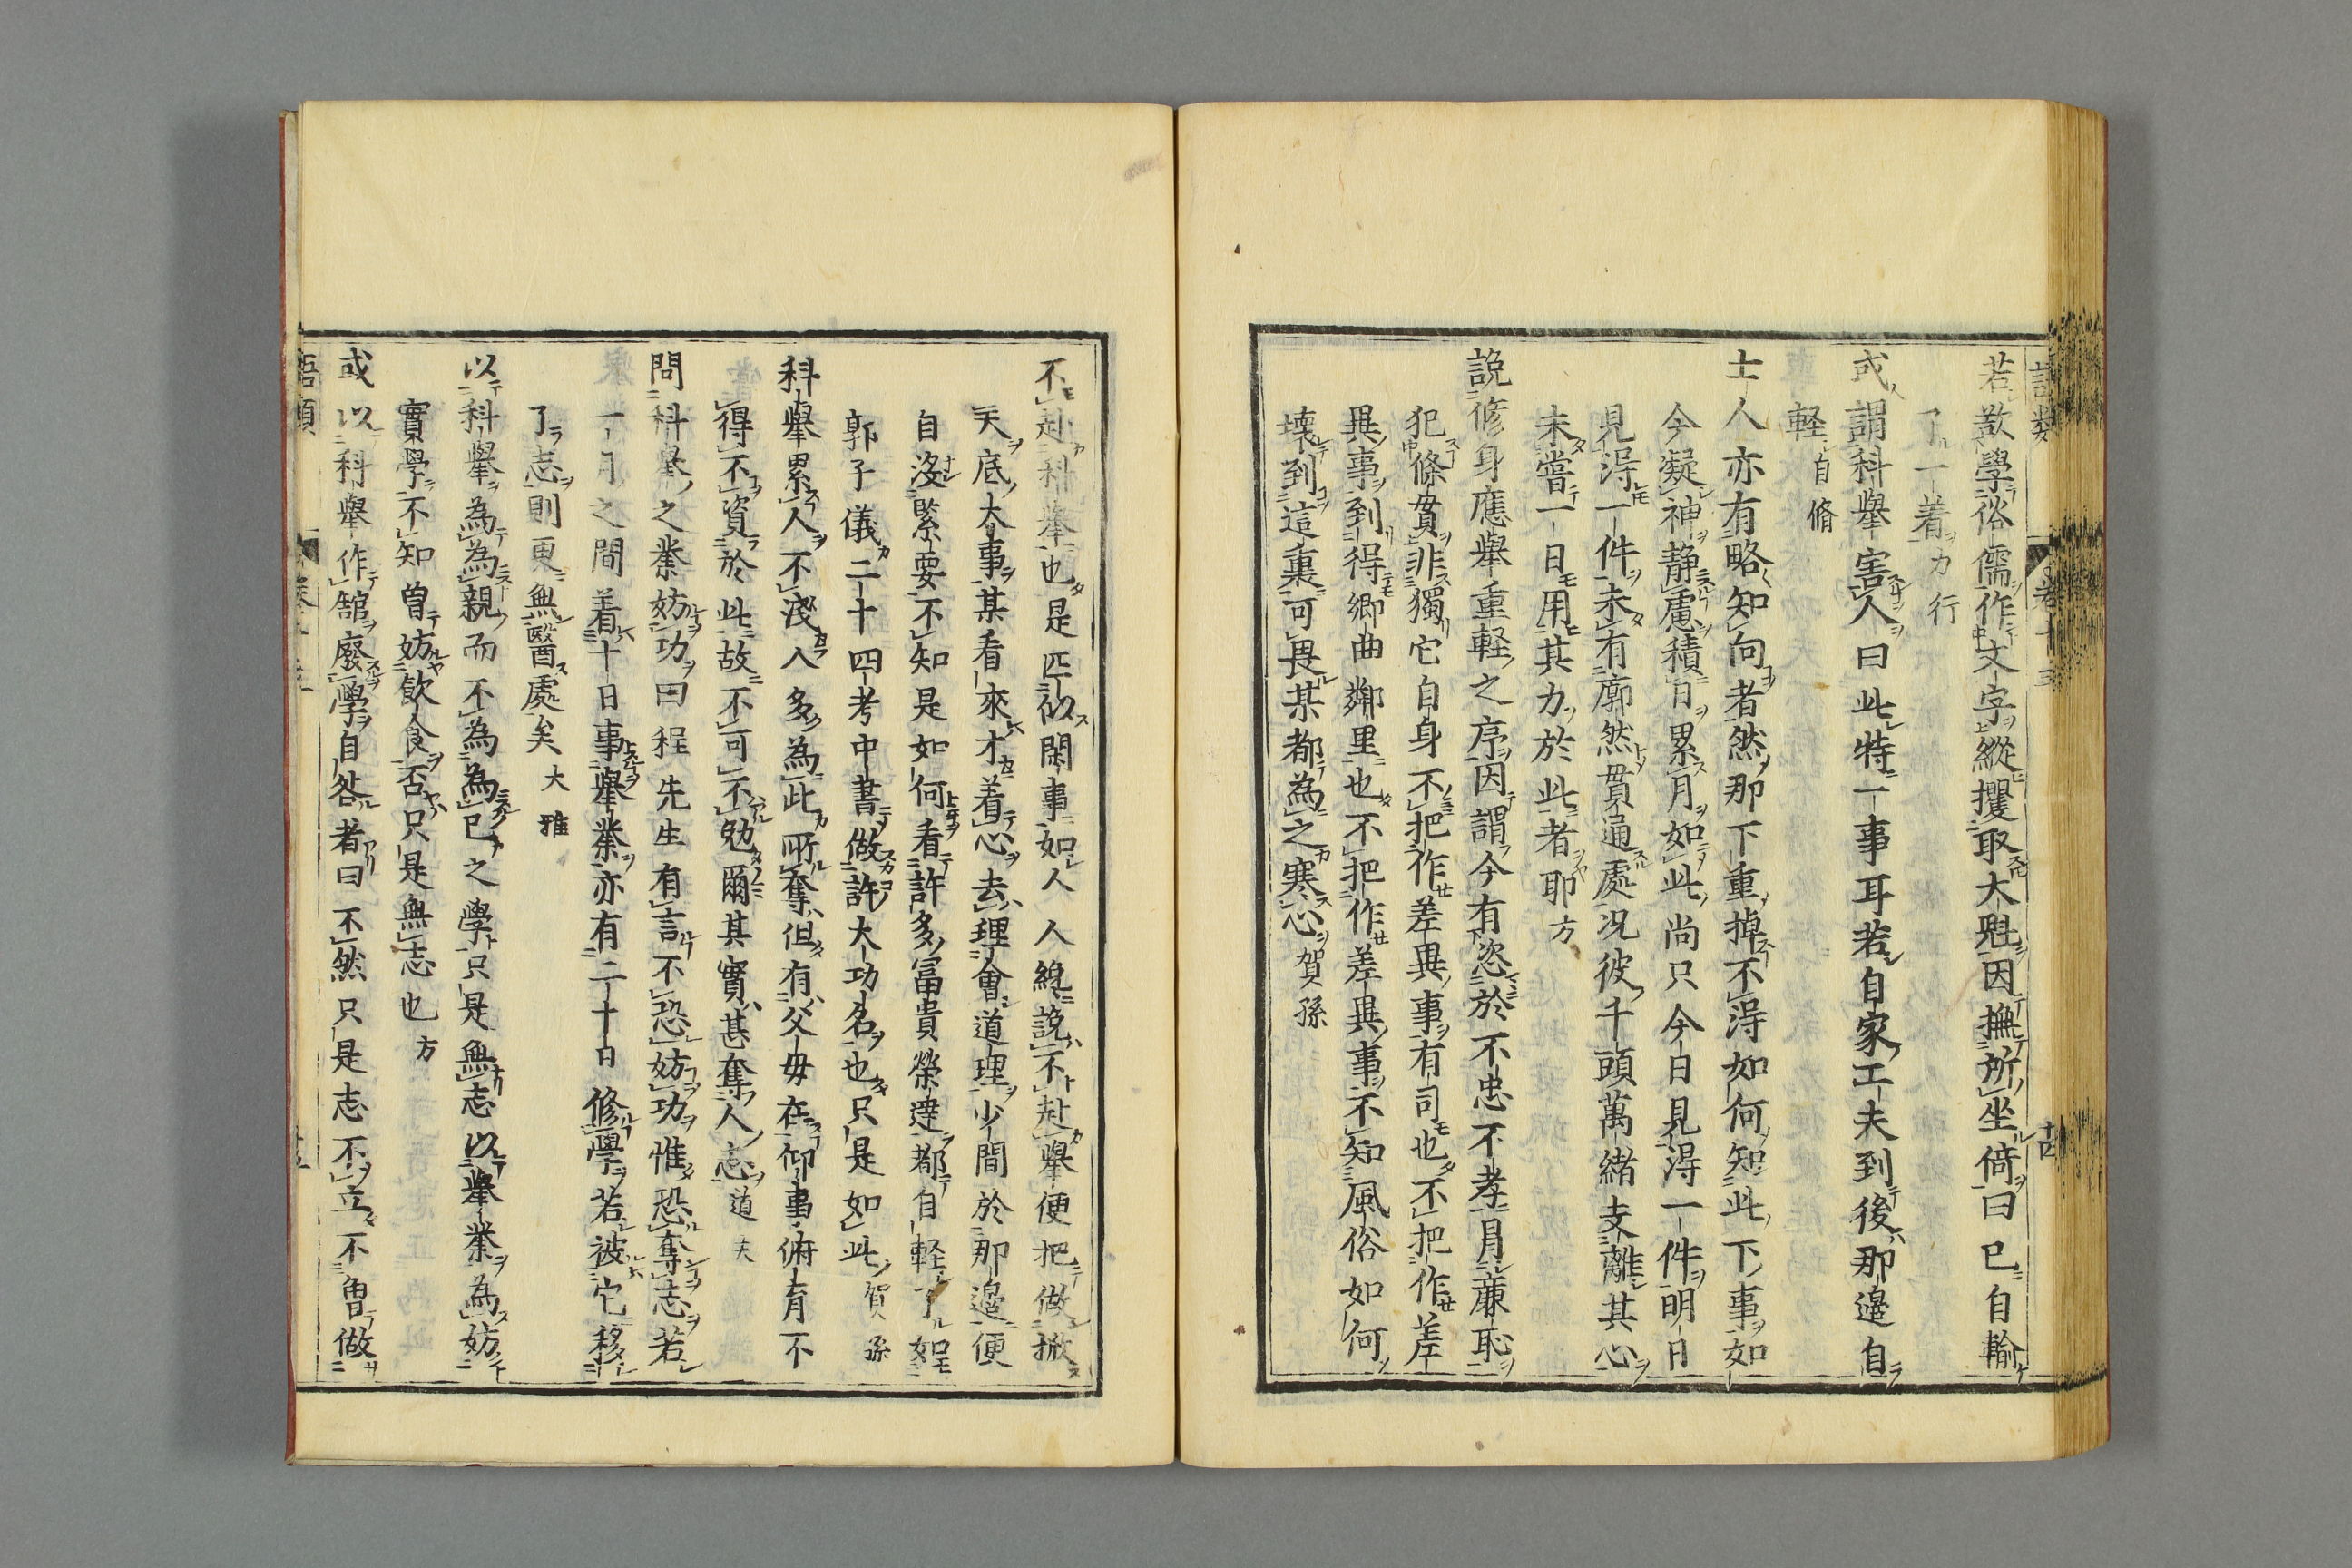 語類 卷十三 十四
若欲學俗儒作文字縱攫取大魁因撫所坐倚曰已自輸
了一着力行
或謂科舉害人曰此特一事耳若自家工夫到後那邊自
軽自脩
士人亦有略知向者然那下重掉不得如何知此下事如
今凝神静慮積日累月如此尚只今日見得一件明日
見得一件未有廓然貫通處况彼千頭萬緒支離其心
未嘗一日用其力於此者耶方
説修身應舉重軽之序因謂今有恣於不忠不孝冐廉恥
犯條貫非獨它自身不把作差異事有司也不把作差
異事到得鄉曲鄰里也不把作差異事不知風俗如何
壊到這裏可畏某都為之寒心賀孫
不赴科舉也是匹似閑事如人人纔説不赴舉便把做掀
天底大事某看來才着心去理會道理少間於那邊便
自沒緊要不知是如何看許多冨貴榮達都自軽了如
郭子儀二十四考中書做許大功名也只是如此賀孫
科舉累人不淺人多為此所奪但有父毋在仰事俯育不
得不資於此故不可不勉爾其實甚奪人志道夫
問科舉之業妨功曰程先生有言不恐妨功惟恐奪志若
一月之間着十日事舉業亦有二十日修學若被它移
了志則更無醫處矣大雅
以科舉為為親而不為為已之學只是無志以舉業為妨
實學不知曽妨飲食否只是無志也方
或以科舉作館廢學自咎者曰不然只是志不立不曽做
語類